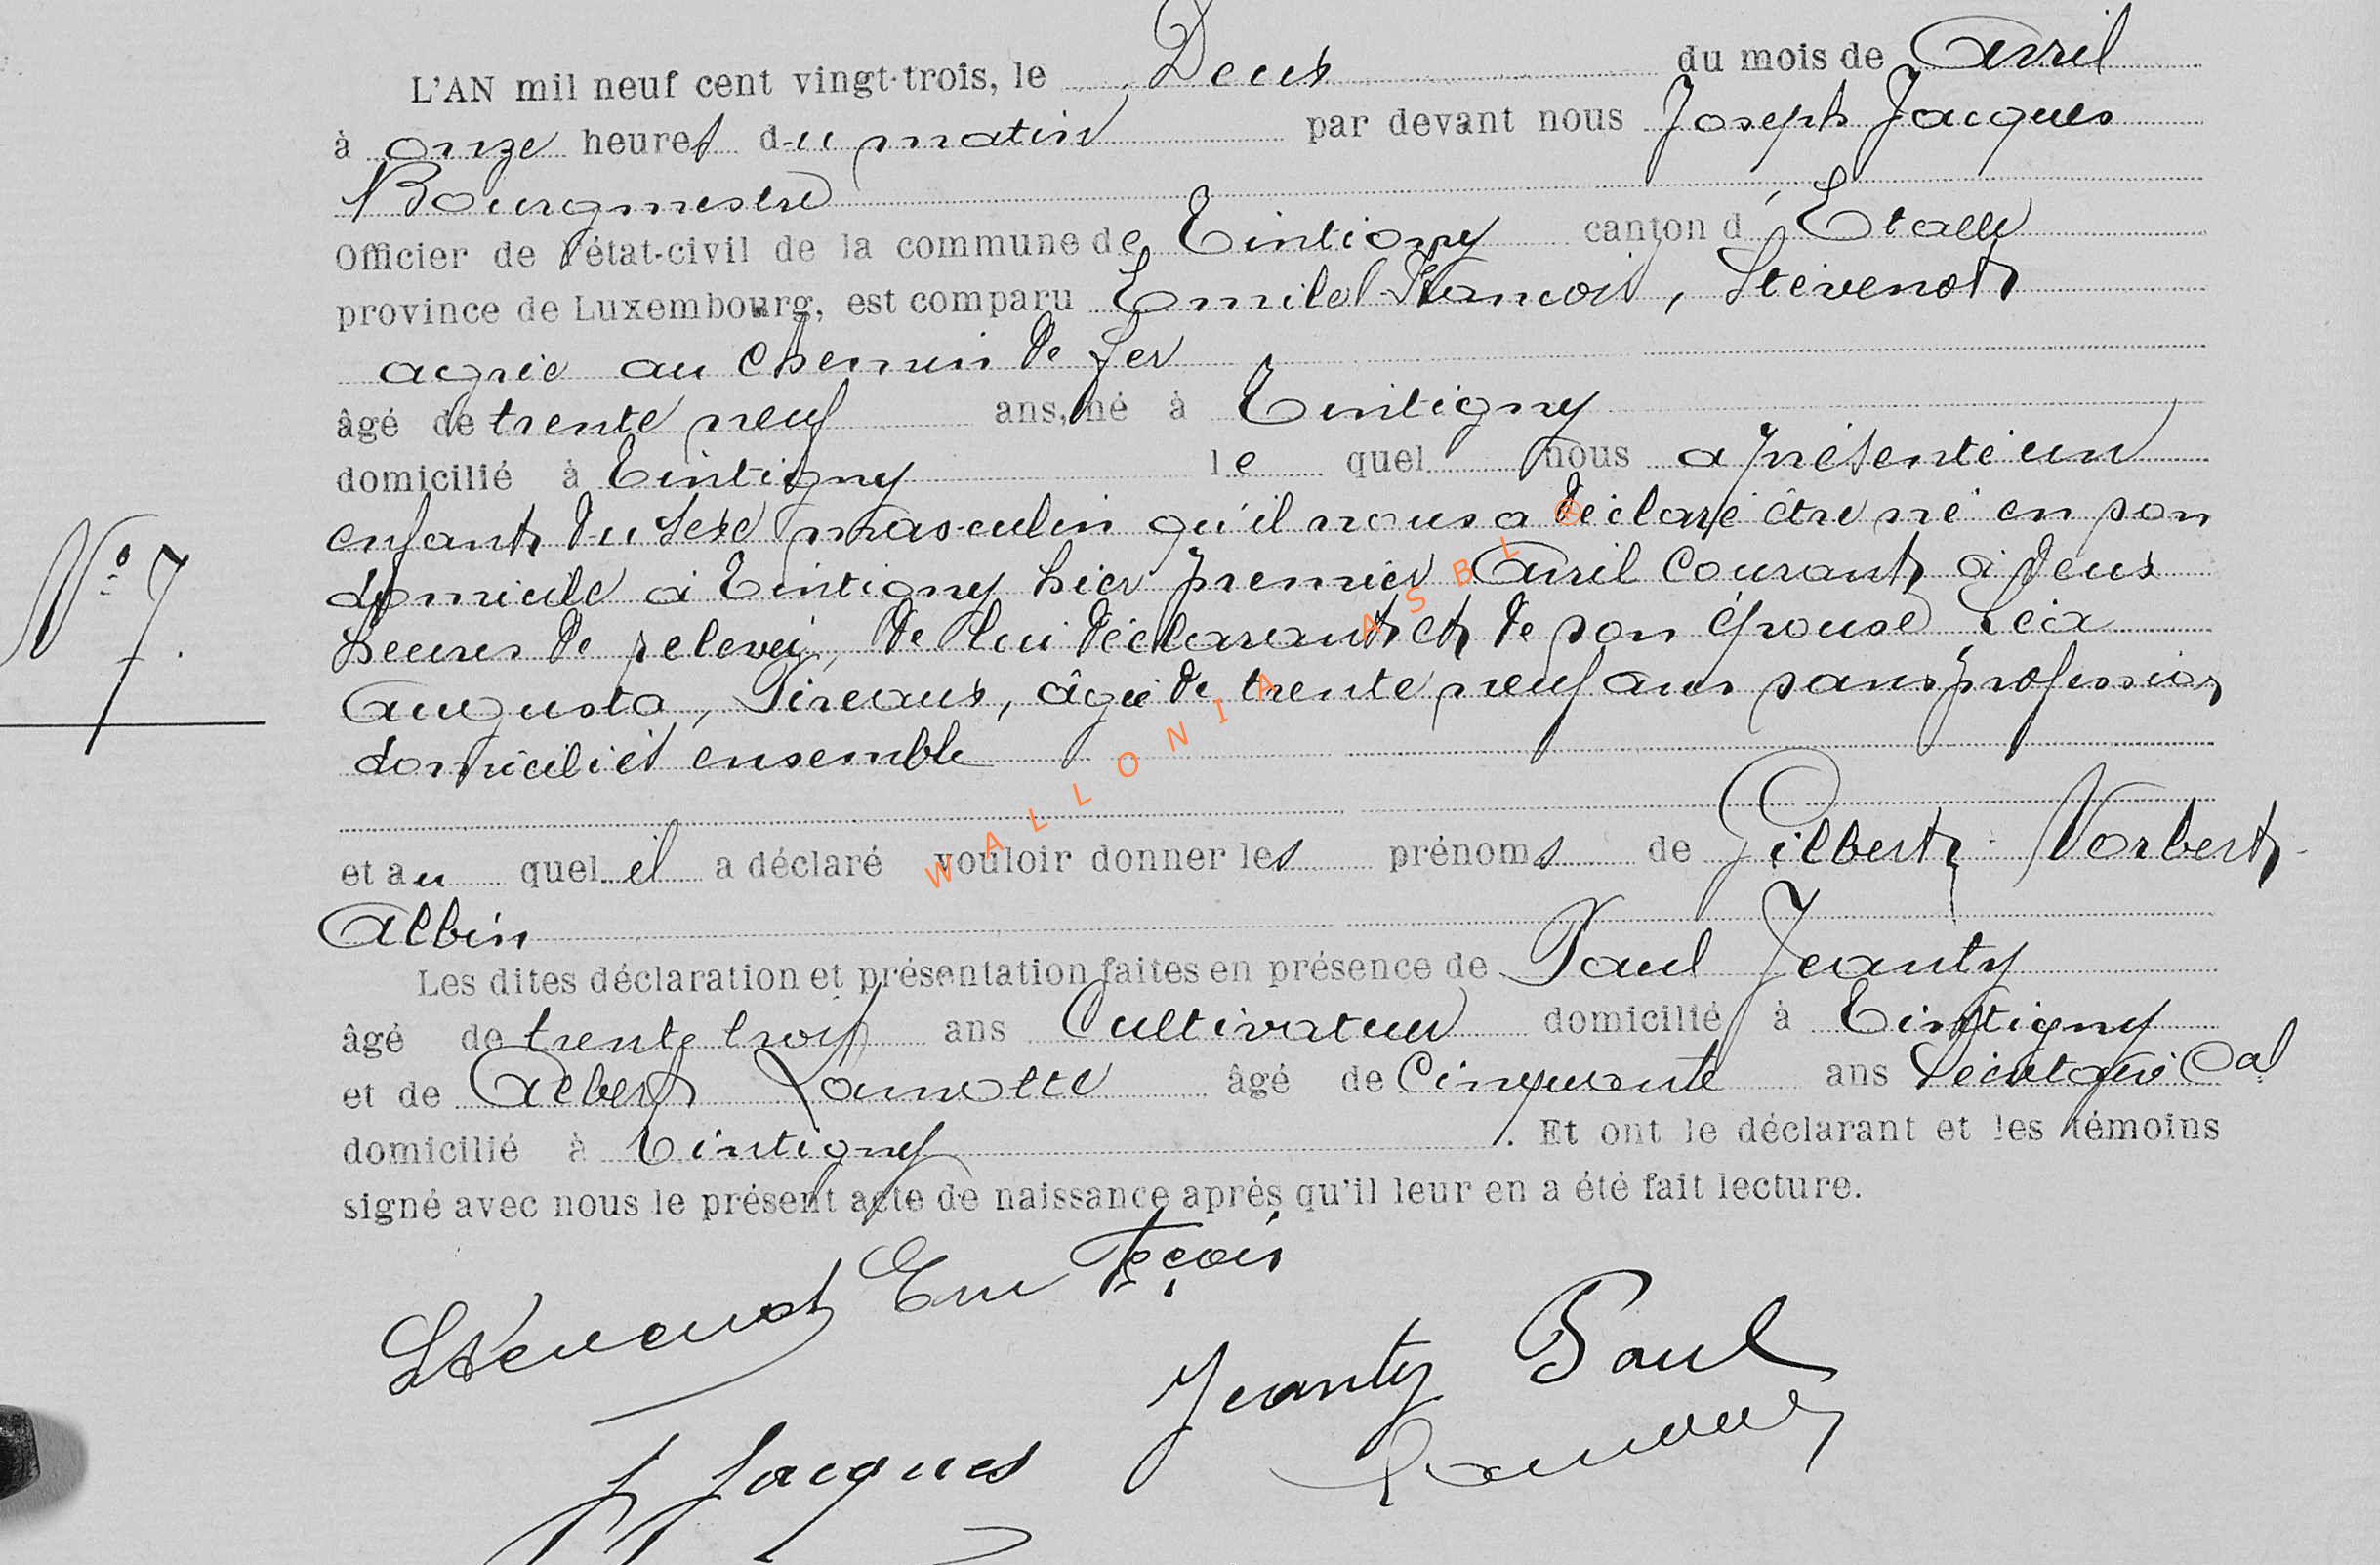 L'AN mil neuf cent vingt-trois, le Deux du mois de Avril
à onze heures du matin par devant nous Joseph Jacques
Bourgmestre
Officier de l'état-civil de la commune de Tintigny canton d'Etalle
province de Luxembourg, est comparu Emile François, Stévenot
agréé au chemin de fer
âgé de trente neuf ans, né à Tintigny
domicilié à Tintigny le quel nous a présenté un
enfant du sexe masculin qu'il nous a déclaré être né en son
domicile à Tintigny hier premier Avril courant à deux
heures de relevée, de lui déclarant et de son épouse Léa
Augusta, Pireaux, âgée de trente neuf ans sans profession
domiciliés ensemble
N° 7.
et au quel il a déclaré vouloir donner les prénoms de Gilbert Norbert
Albin
Les dites déclaration et présentation faites en présence de Paul Jeanty
âgé de trente trois ans Cultivateur domicilié à Tintigny
et de Albert Lamotte âgé de Cinquante ans Secrétaire Cal
domicilié à Tintigny. Et ont le déclarant et les témoins
signé avec nous le présent acte de naissance après qu'il leur en a été fait lecture.
Stévenot Em Fçois
Jeanty Paul
J Jacques
WALLONIA ASBL ®